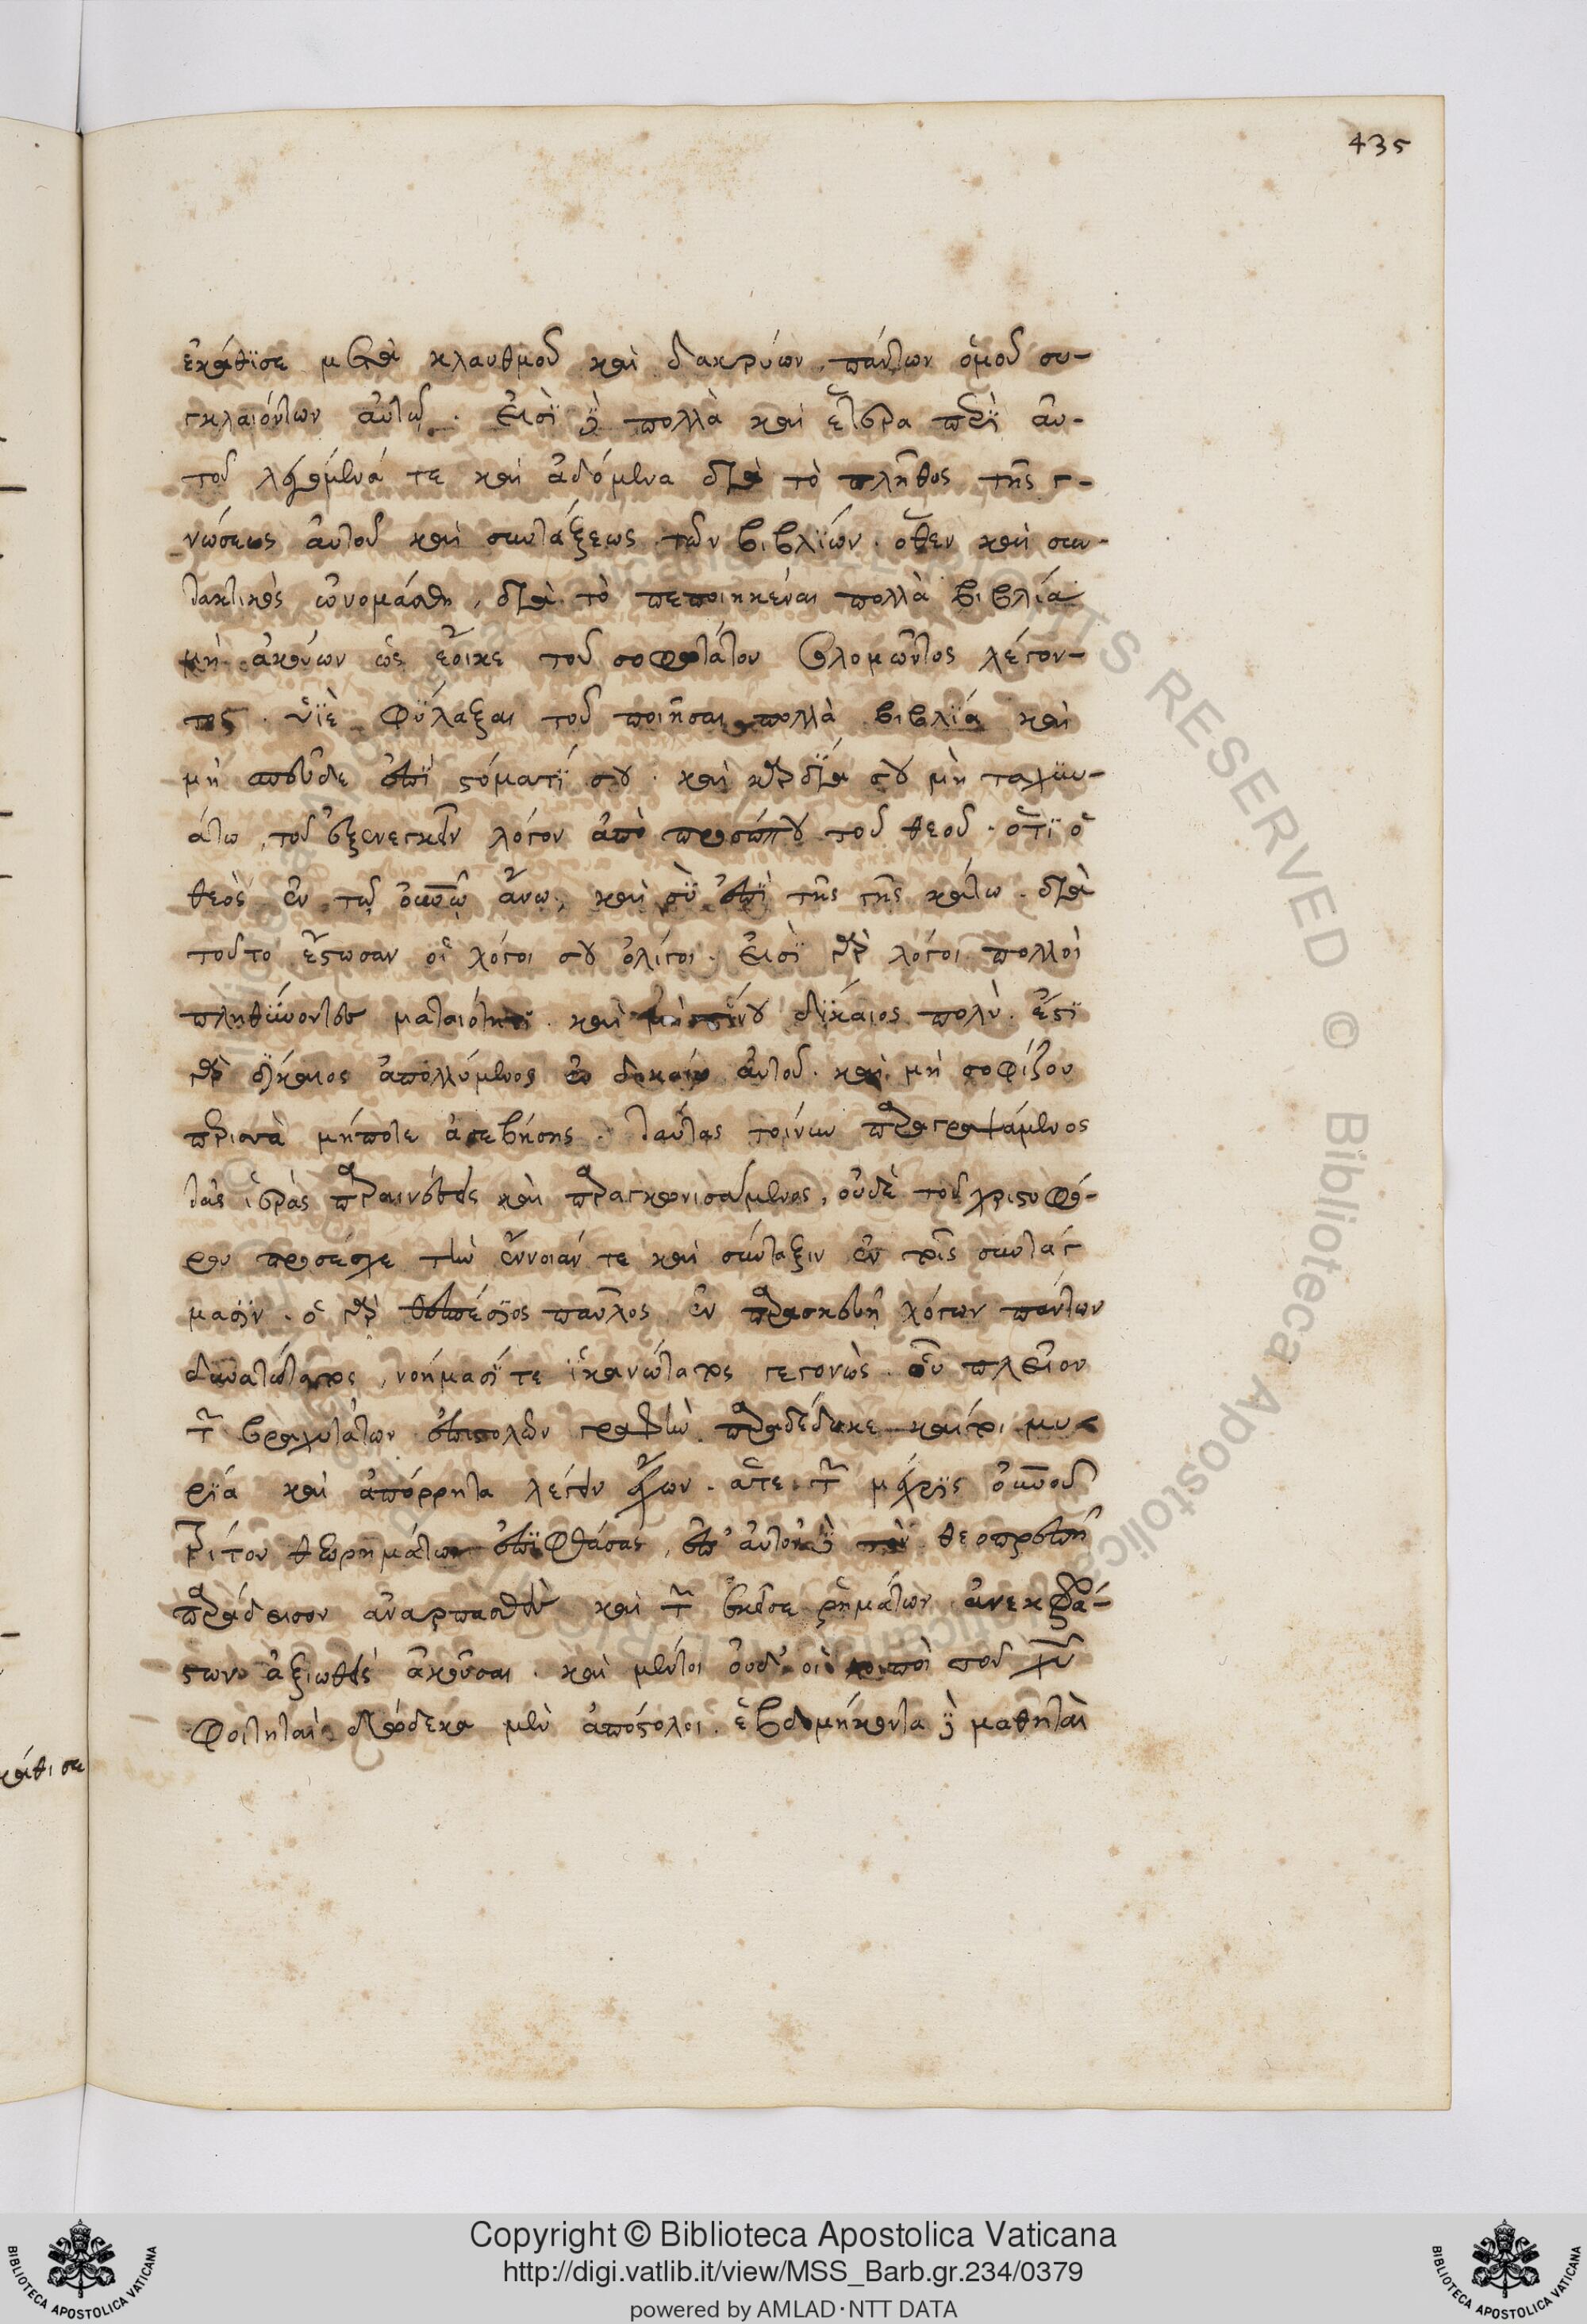 435
ἐκάθϊσε μετὰ κλαυθμοῦ καὶ δακρύων, πάντων ὁμοῦ συ-
γκλαιόντων αὐτῶ. εἰσὶ δὲ πολλὰ καὶ ἕτερα περὶ αὐ-
τοῦ λεγόμενά τε καὶ ἀδόμενα διὰ τὸ πλῆθος τῆς γ-
νώσεως αὐτοῦ καὶ συντάξεως τῶν βιβλϊίων. ὅθεν καὶ συν-
τακτικὸς ὠνομάσθη, διὰ τὸ πεποιηκέναι πολλὰ βιβλία
μὴ ἀκούων ὡς ἔοικε τοῦ σοφωτάτου σολομῶντος λέγον-
τος. ὑϊὲ φύλαξαι τοῦ ποιῆσαι πολλὰ βιβλϊά καὶ
μὴ σπεῦδε ἐπὶ στόματϊ σου. καὶ καρδία σου μὴ ταχυν-
άτω, τοῦ ἐξενεγκεῖν λόγον ἀπὸ προσώπου τοῦ θεοῦ. ὅτϊ ὁ
θεὸς ἐν τῶ οὐνῶ ἄνω, καὶ σὺ ἐπὶ τῆς γῆς κάτω. διὰ
τοῦτο ἔστωσαν οἱ λόγοι σου ὀλίγοι. εἰσὶ γὰρ λόγοι πολλοὶ
πληθύνοντες ματαιότητα. καὶ μὴ γίνου δϊκαιος πολύ. ἔστϊ
γὰρ δϊκαιος ἀπολλύμενος ἐν δικαίω αὐτοῦ. καὶ μὴ σοφίζου
περισσὰ μήποτε ἀσεβήσης. ταύτας τοίνυν παραγραψάμενος
τὰς ἱερὰς παραινέσεις καὶ παραγκωνισάμενος, οὐδὲ τοῦ χριστοφό-
ρου προσέσχε τὴν ἔννοιάν τε καὶ σύνταξιν ἐν τοῖς συντάγ
μασϊν. ὁ γὰρ θεσπέσϊος παῦλος ἐν παρασκευῆ λόγων πάντων
δυνατώτατος, νοήμασϊ τε ἱκανώτατος γεγονὼς. οὐ πλεῖον
τῶν βραχυτάτων ἐπιστολῶν γραφὴν παραδέδωκε καίτοι μυ-
ρϊά καὶ ἀπόρρητα λέγειν ἔχων. ἅτε τῶν μέχρϊς οὐνοῦ
τρίτου θεωρημάτων ἐπϊφθάσας, ἐπ' αὐτὸν δὲ τὸν θεοπρεπῆ
παράδεισον ἀναρπασθεὶς καὶ τῶν ἐκεῖσε ῥημάτων ἀνεκφρά-
στων ἀξιωθεὶς ἀκοῦσαι. καὶ μέντοι οὐδ' οἱ λοιποὶ τοῦ χυ
φοιτηταὶ, δώδεκα μὲν ἀπόστολοι. ἑβδομήκοντα δὲ μαθηταὶ
κάθισε
Copyright © Biblioteca Apostolica Vaticana
http://digi.vatlib.it/view/MSS_Barb.gr.234/0379
powered by AMLAD·NTT DATA